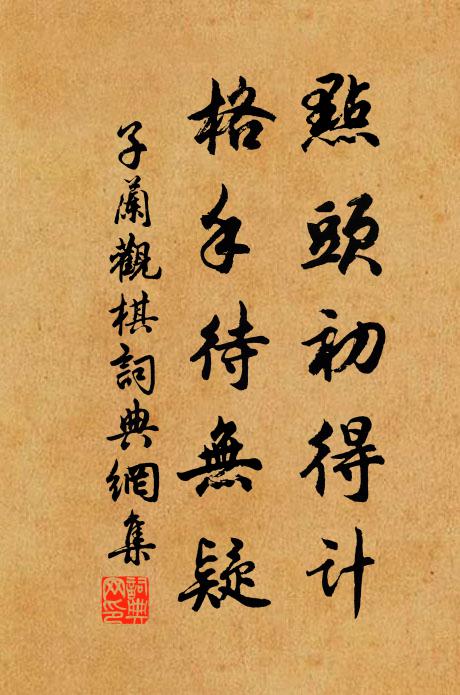 點頭初得計
格手待無疑
子蘭觀棋詞典網集
詞典
网印